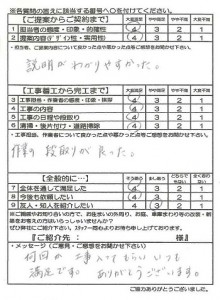 ※各質問の答えに該当する番号へ○を付けてください。
【ご提案からご契約まで】 大変満足 やや満足 やや不満 大変不満
1 担当者の態度・印象・的確性 4 3 2 1
2 提案内容(デザイン性・実用性) 4 3 2 1
説明がわかりやすかった。
【工事着工から完工まで】 大変満足 やや満足 やや不満 大変不満
3 工事担当・作業者の態度・印象・挨拶 4 3 2 1
4 工事の内容 4 3 2 1
5 工事の日程や段取り 4 3 2 1
6 清掃・後片付・道路掃除 4 3 2 1
作業の段取りが良った。
【全般的に…】
7 全体を通して満足した 4 3 2 1
8 今後も依頼したい 4 3 2 1
9 友人・知人を紹介したい 4 3 2 1
【ご紹介先: 様】
・メッセージ(ご意見・ご感想をお聞かせ下さい)
何回か工事入ってもらい いつも
満足です。ありがとうございます。
ご協力ありがとうございました。